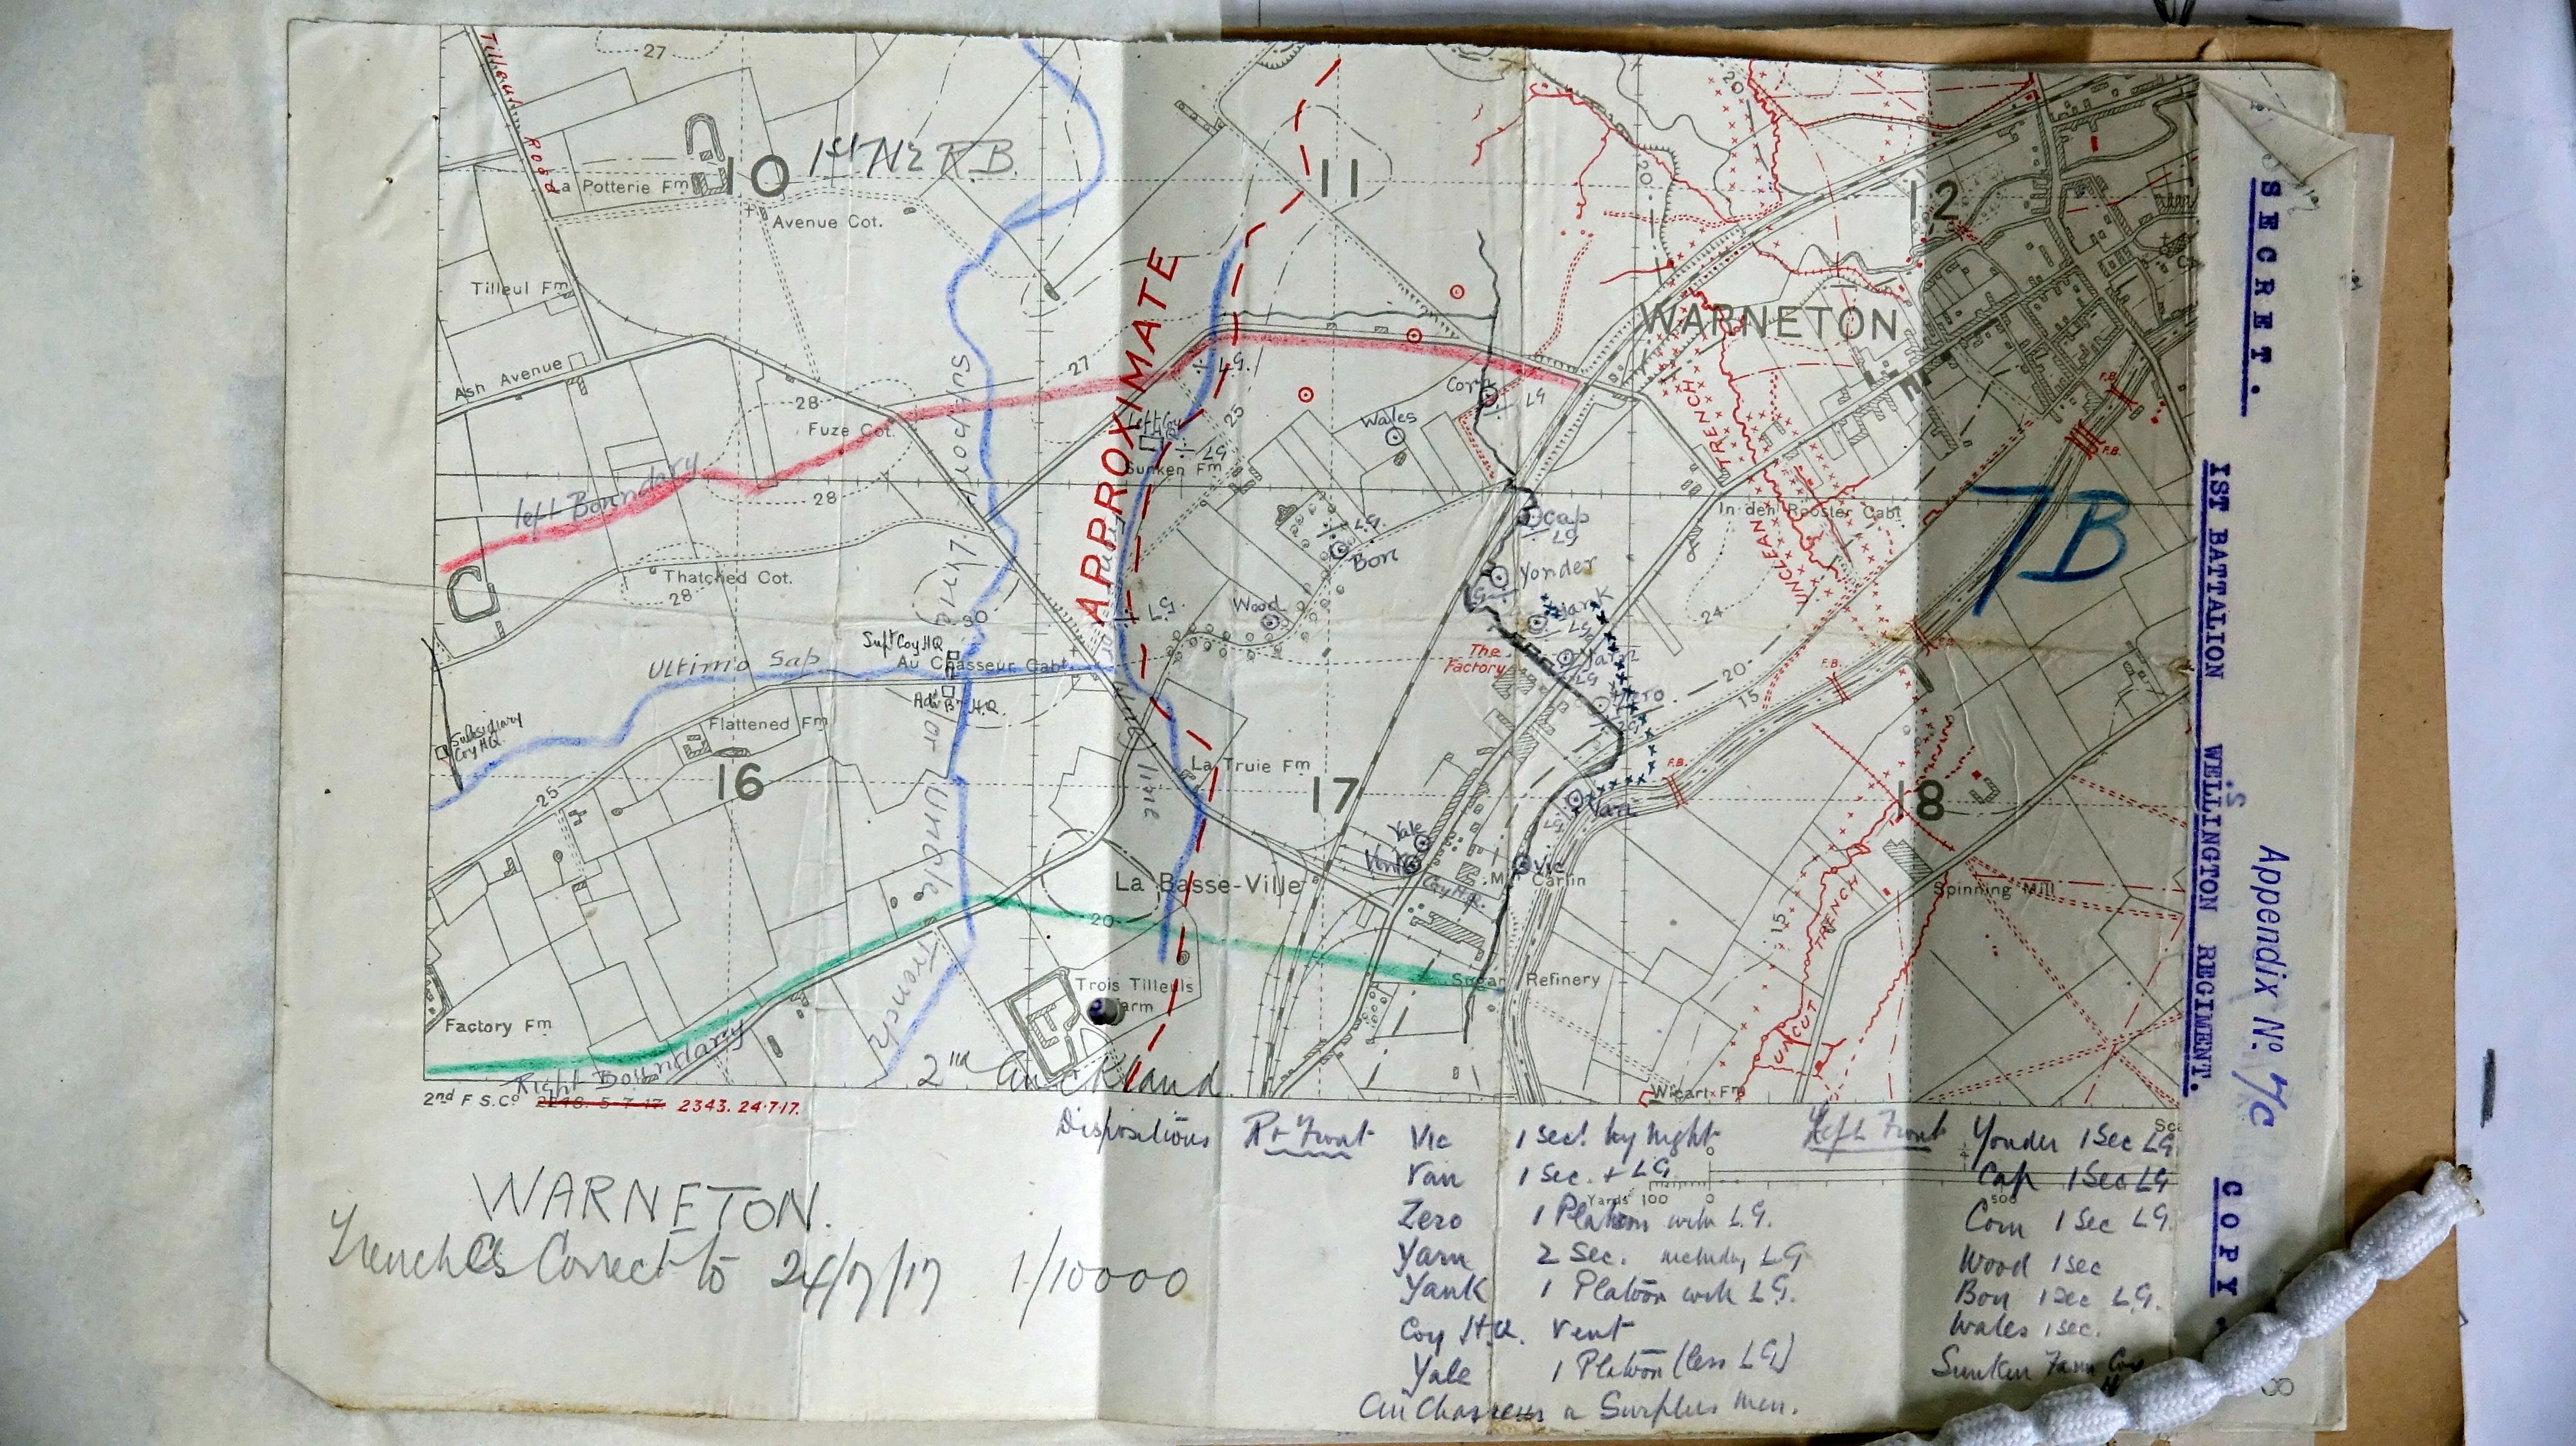 Tilleul Road
27
10
1st NZ R.B.
11
20
20
12
La Potterie Fm
Avenue Cot.
Tilleul Fm
WARNETON
Ash Avenue
27
28
Fuze Cot.
Support
APPROXIMATE
L.G.
25
Left Coy
H.Q.
LG
Sunken Fm
Wales
Corn
LG
TRENCH
F.B.
F.B.
left Boundary
28
Line
L.G.
Bon
Cap
LG
In den Rooster Cabt
7B
Thatched Cot.
28
Yonder
LG
UNCLEAN
30
LG
Wood
Yank
LG
24
Supt Coy HQ
Au Chasseur Cabt
Ultimo Sap
The
Factory
Yarn
LG
F.B.
F.B.
20
15
Adv Bn H.Q.
Zero
LG
Subsidiary
Coy H.Q.
Flattened Fm
or Uncle Trench
line
La Truie Fm
F.B.
16
17
18
25
Van
LG
Yale
Vent
Coy H.Q.
Vic
Mn Carlin
La Basse-Ville
Spinning Mill
20
15
TRENCH
UNCUT
Trois Tilleuls
Farm
Sugar Refinery
Factory Fm
Right Boundary
2nd Auckland
Wicart Fm
2nd F.S.Co 2248. 5-7-17 2343. 24-7-17.
Dispositions Rt Front Vic 1 sec. by night
Van 1 Sec. + LG.
Zero 1 Platoon with L.G.
Yarn 2 Sec. including LG
Yank 1 Platoon with L.G.
Coy H.Q. Vent
Yale 1 Platoon (less LG)
Au Chasseur a Surplus men.
Left Front Yonder 1 Sec LG
Cap 1 Sec LG
Corn 1 Sec LG.
Wood 1 sec
Bon 1 sec L.G.
Wales 1 sec.
Sunken Farm Coy
Yards 100 0 500
WARNETON.
Trenches Correct to 24/7/17 1/10000
SECRET.
1ST BATTALION WELLINGTON REGIMENT.
Appendix No. 7/C
COPY